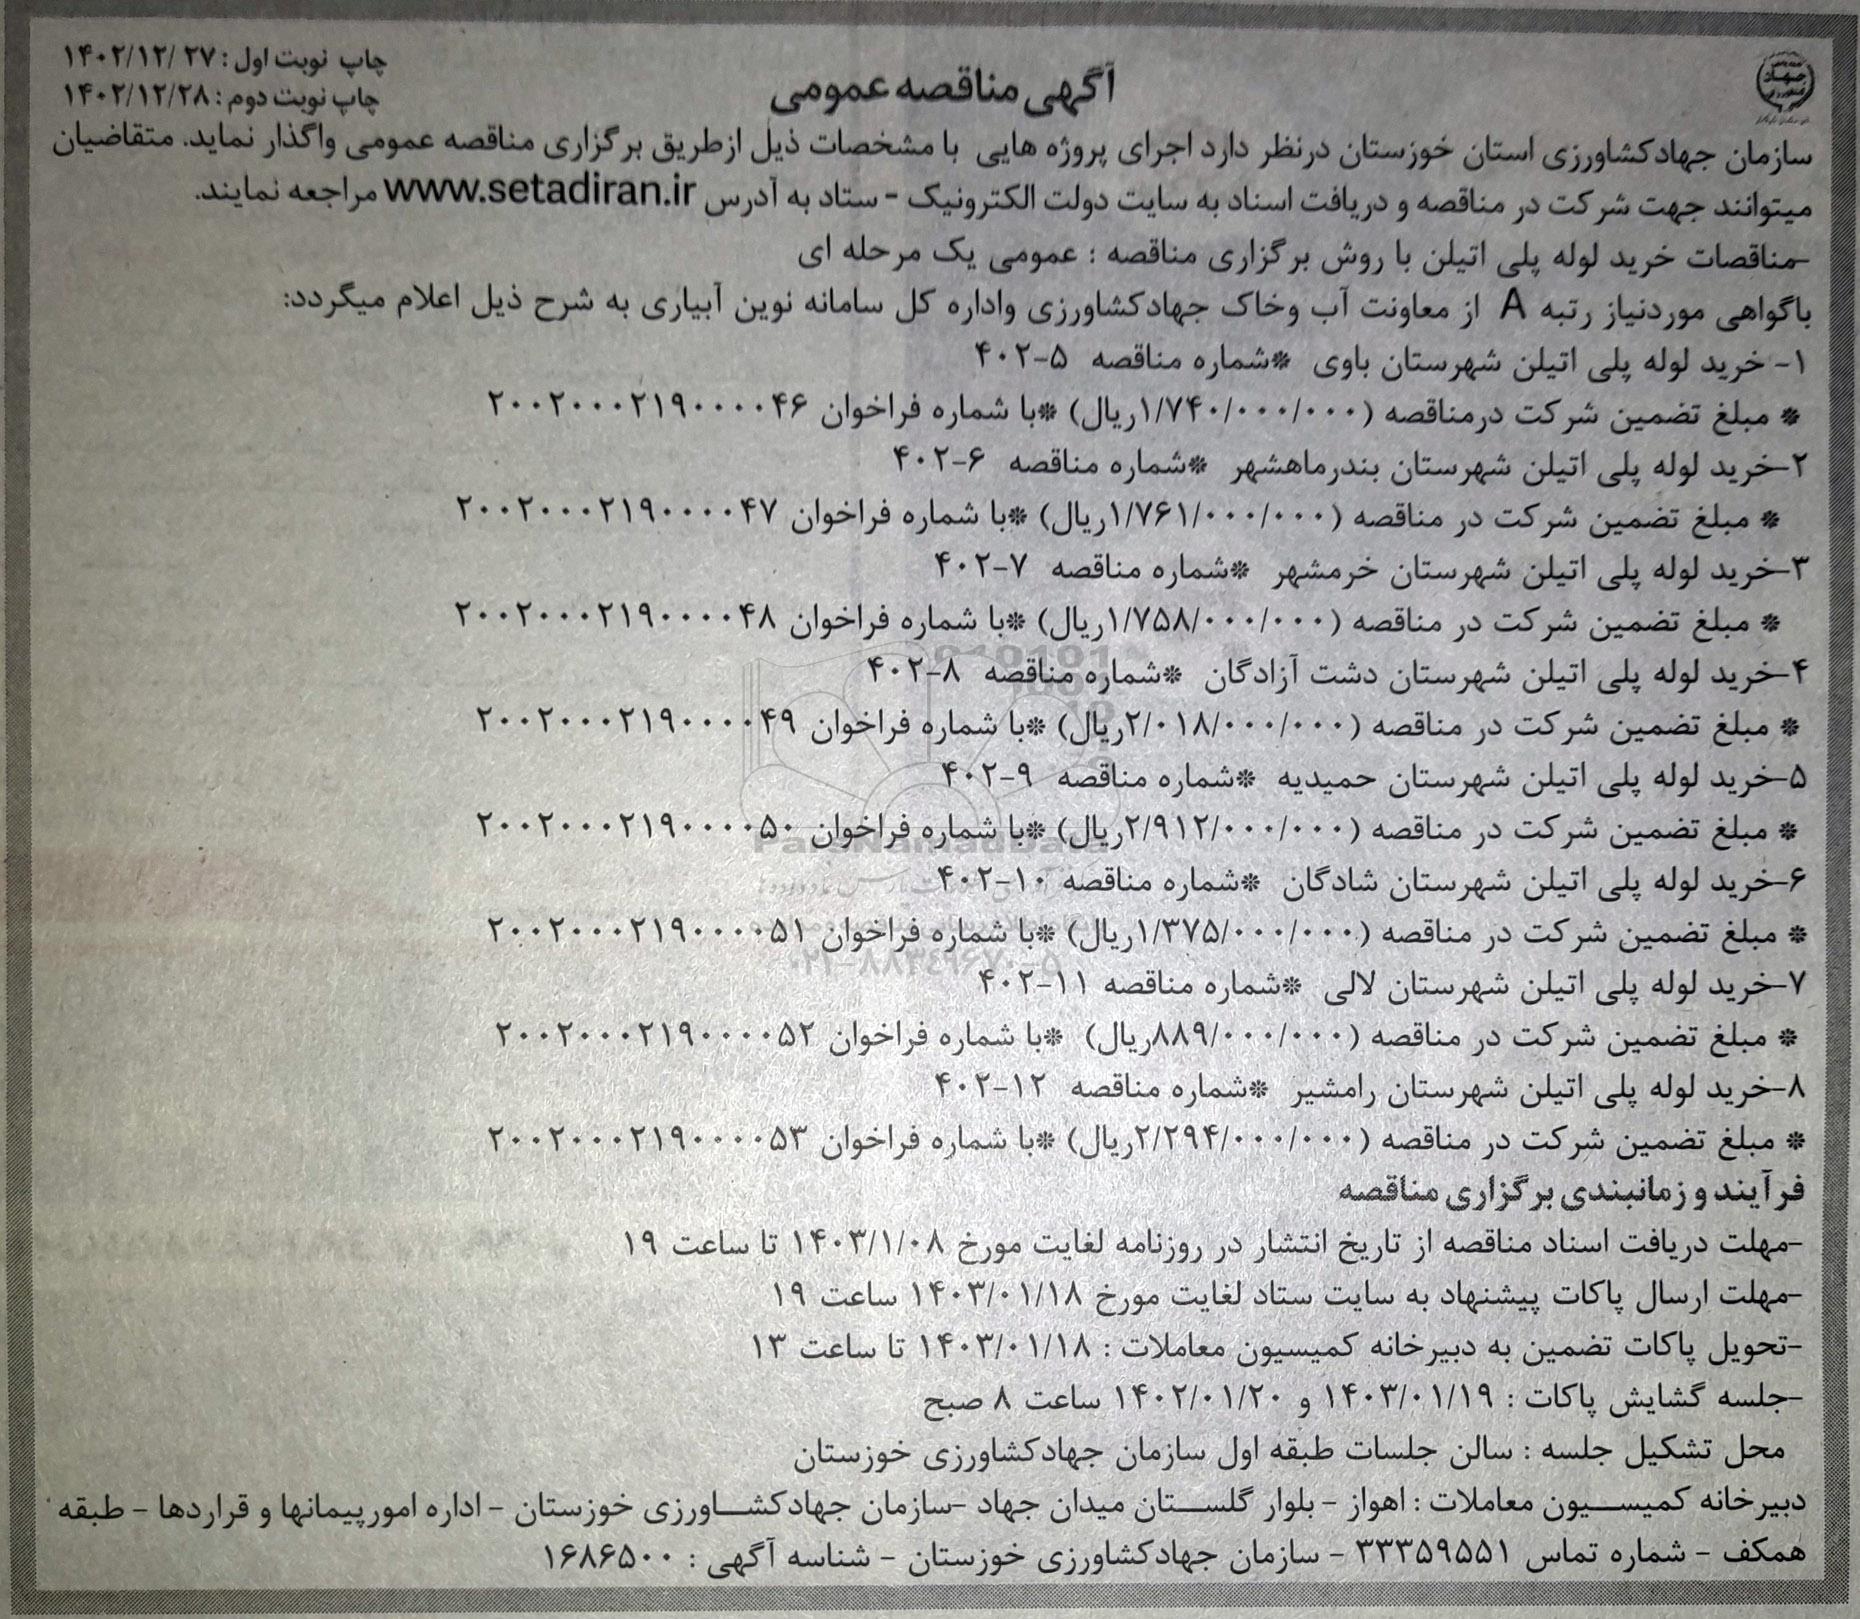 چاپ نوبت اول : ۲۷ /۱۴۰۲/۱۲
چاپ نوبت دوم : ۱۴۰۲/۱۲/۲۸
جهاد
آگهی مناقصه عمومی
سازمان جهادکشاورزی استان خوزستان درنظر دارد اجرای پروژه هایی با مشخصات ذیل ازطریق برگزاری مناقصه عمومی واگذار نماید. متقاضیان
میتوانند جهت شرکت در مناقصه و دریافت اسناد به سایت دولت الکترونیک - ستاد به آدرس www.setadiran.ir مراجعه نمایند.
-مناقصات خرید لوله پلی اتیلن با روش برگزاری مناقصه : عمومی یک مرحله ای
باگواهی موردنیاز رتبه A از معاونت آب وخاک جهادکشاورزی واداره کل سامانه نوین آبیاری به شرح ذیل اعلام میگردد:
۱- خرید لوله پلی اتیلن شهرستان باوی *شماره مناقصه ۵-۴۰۲
* مبلغ تضمین شرکت درمناقصه (۱/۷۴۰/۰۰۰/۰۰۰ریال) *با شماره فراخوان ۲۰۰۲۰۰۰۲۱۹۰۰۰۰۴۶
۲-خرید لوله پلی اتیلن شهرستان بندرماهشهر *شماره مناقصه ۶-۴۰۲
* مبلغ تضمین شرکت در مناقصه (۱/۷۶۱/۰۰۰/۰۰۰ریال) *با شماره فراخوان ۲۰۰۲۰۰۰۲۱۹۰۰۰۰۴۷
۳-خرید لوله پلی اتیلن شهرستان خرمشهر *شماره مناقصه ۷-۴۰۲
* مبلغ تضمین شرکت در مناقصه (۱/۷۵۸/۰۰۰/۰۰۰ریال) *با شماره فراخوان ۲۰۰۲۰۰۰۲۱۹۰۰۰۰۴۸
۴-خرید لوله پلی اتیلن شهرستان دشت آزادگان *شماره مناقصه ۸-۴۰۲
* مبلغ تضمین شرکت در مناقصه (۲/۰۱۸/۰۰۰/۰۰۰ریال) *با شماره فراخوان ۲۰۰۲۰۰۰۲۱۹۰۰۰۰۴۹
۵-خرید لوله پلی اتیلن شهرستان حمیدیه *شماره مناقصه ۹-۴۰۲
* مبلغ تضمین شرکت در مناقصه (۲/۹۱۲/۰۰۰/۰۰۰ریال) *با شماره فراخوان ۲۰۰۲۰۰۰۲۱۹۰۰۰۰۵۰
ParsNamadData
۶-خرید لوله پلی اتیلن شهرستان شادگان *شماره مناقصه ۱۰-۴۰۲
* مبلغ تضمین شرکت در مناقصه (۱/۳۷۵/۰۰۰/۰۰۰ریال) *با شماره فراخوان ۲۰۰۲۰۰۰۲۱۹۰۰۰۰۵۱
۰۲۱-۸۸۳۴۹۶۷۰-۵
۷-خرید لوله پلی اتیلن شهرستان لالی *شماره مناقصه ۱۱-۴۰۲
* مبلغ تضمین شرکت در مناقصه (۸۸۹/۰۰۰/۰۰۰ریال) *با شماره فراخوان ۲۰۰۲۰۰۰۲۱۹۰۰۰۰۵۲
۸-خرید لوله پلی اتیلن شهرستان رامشیر *شماره مناقصه ۱۲-۴۰۲
* مبلغ تضمین شرکت در مناقصه (۲/۲۹۴/۰۰۰/۰۰۰ریال) *با شماره فراخوان ۲۰۰۲۰۰۰۲۱۹۰۰۰۰۵۳
فرآیند و زمانبندی برگزاری مناقصه
-مهلت دریافت اسناد مناقصه از تاریخ انتشار در روزنامه لغایت مورخ ۱۴۰۳/۱/۰۸ تا ساعت ۱۹
-مهلت ارسال پاکات پیشنهاد به سایت ستاد لغایت مورخ ۱۴۰۳/۰۱/۱۸ ساعت ۱۹
-تحویل پاکات تضمین به دبیرخانه کمیسیون معاملات : ۱۴۰۳/۰۱/۱۸ تا ساعت ۱۳
-جلسه گشایش پاکات : ۱۴۰۳/۰۱/۱۹ و ۱۴۰۲/۰۱/۲۰ ساعت ۸ صبح
محل تشکیل جلسه : سالن جلسات طبقه اول سازمان جهادکشاورزی خوزستان
دبیرخانه کمیسیون معاملات : اهواز - بلوار گلستان میدان جهاد -سازمان جهادکشاورزی خوزستان - اداره امورپیمانها و قراردها - طبقه
همکف - شماره تماس ۳۳۳۵۹۵۵۱ - سازمان جهادکشاورزی خوزستان - شناسه آگهی : ۱۶۸۶۵۰۰